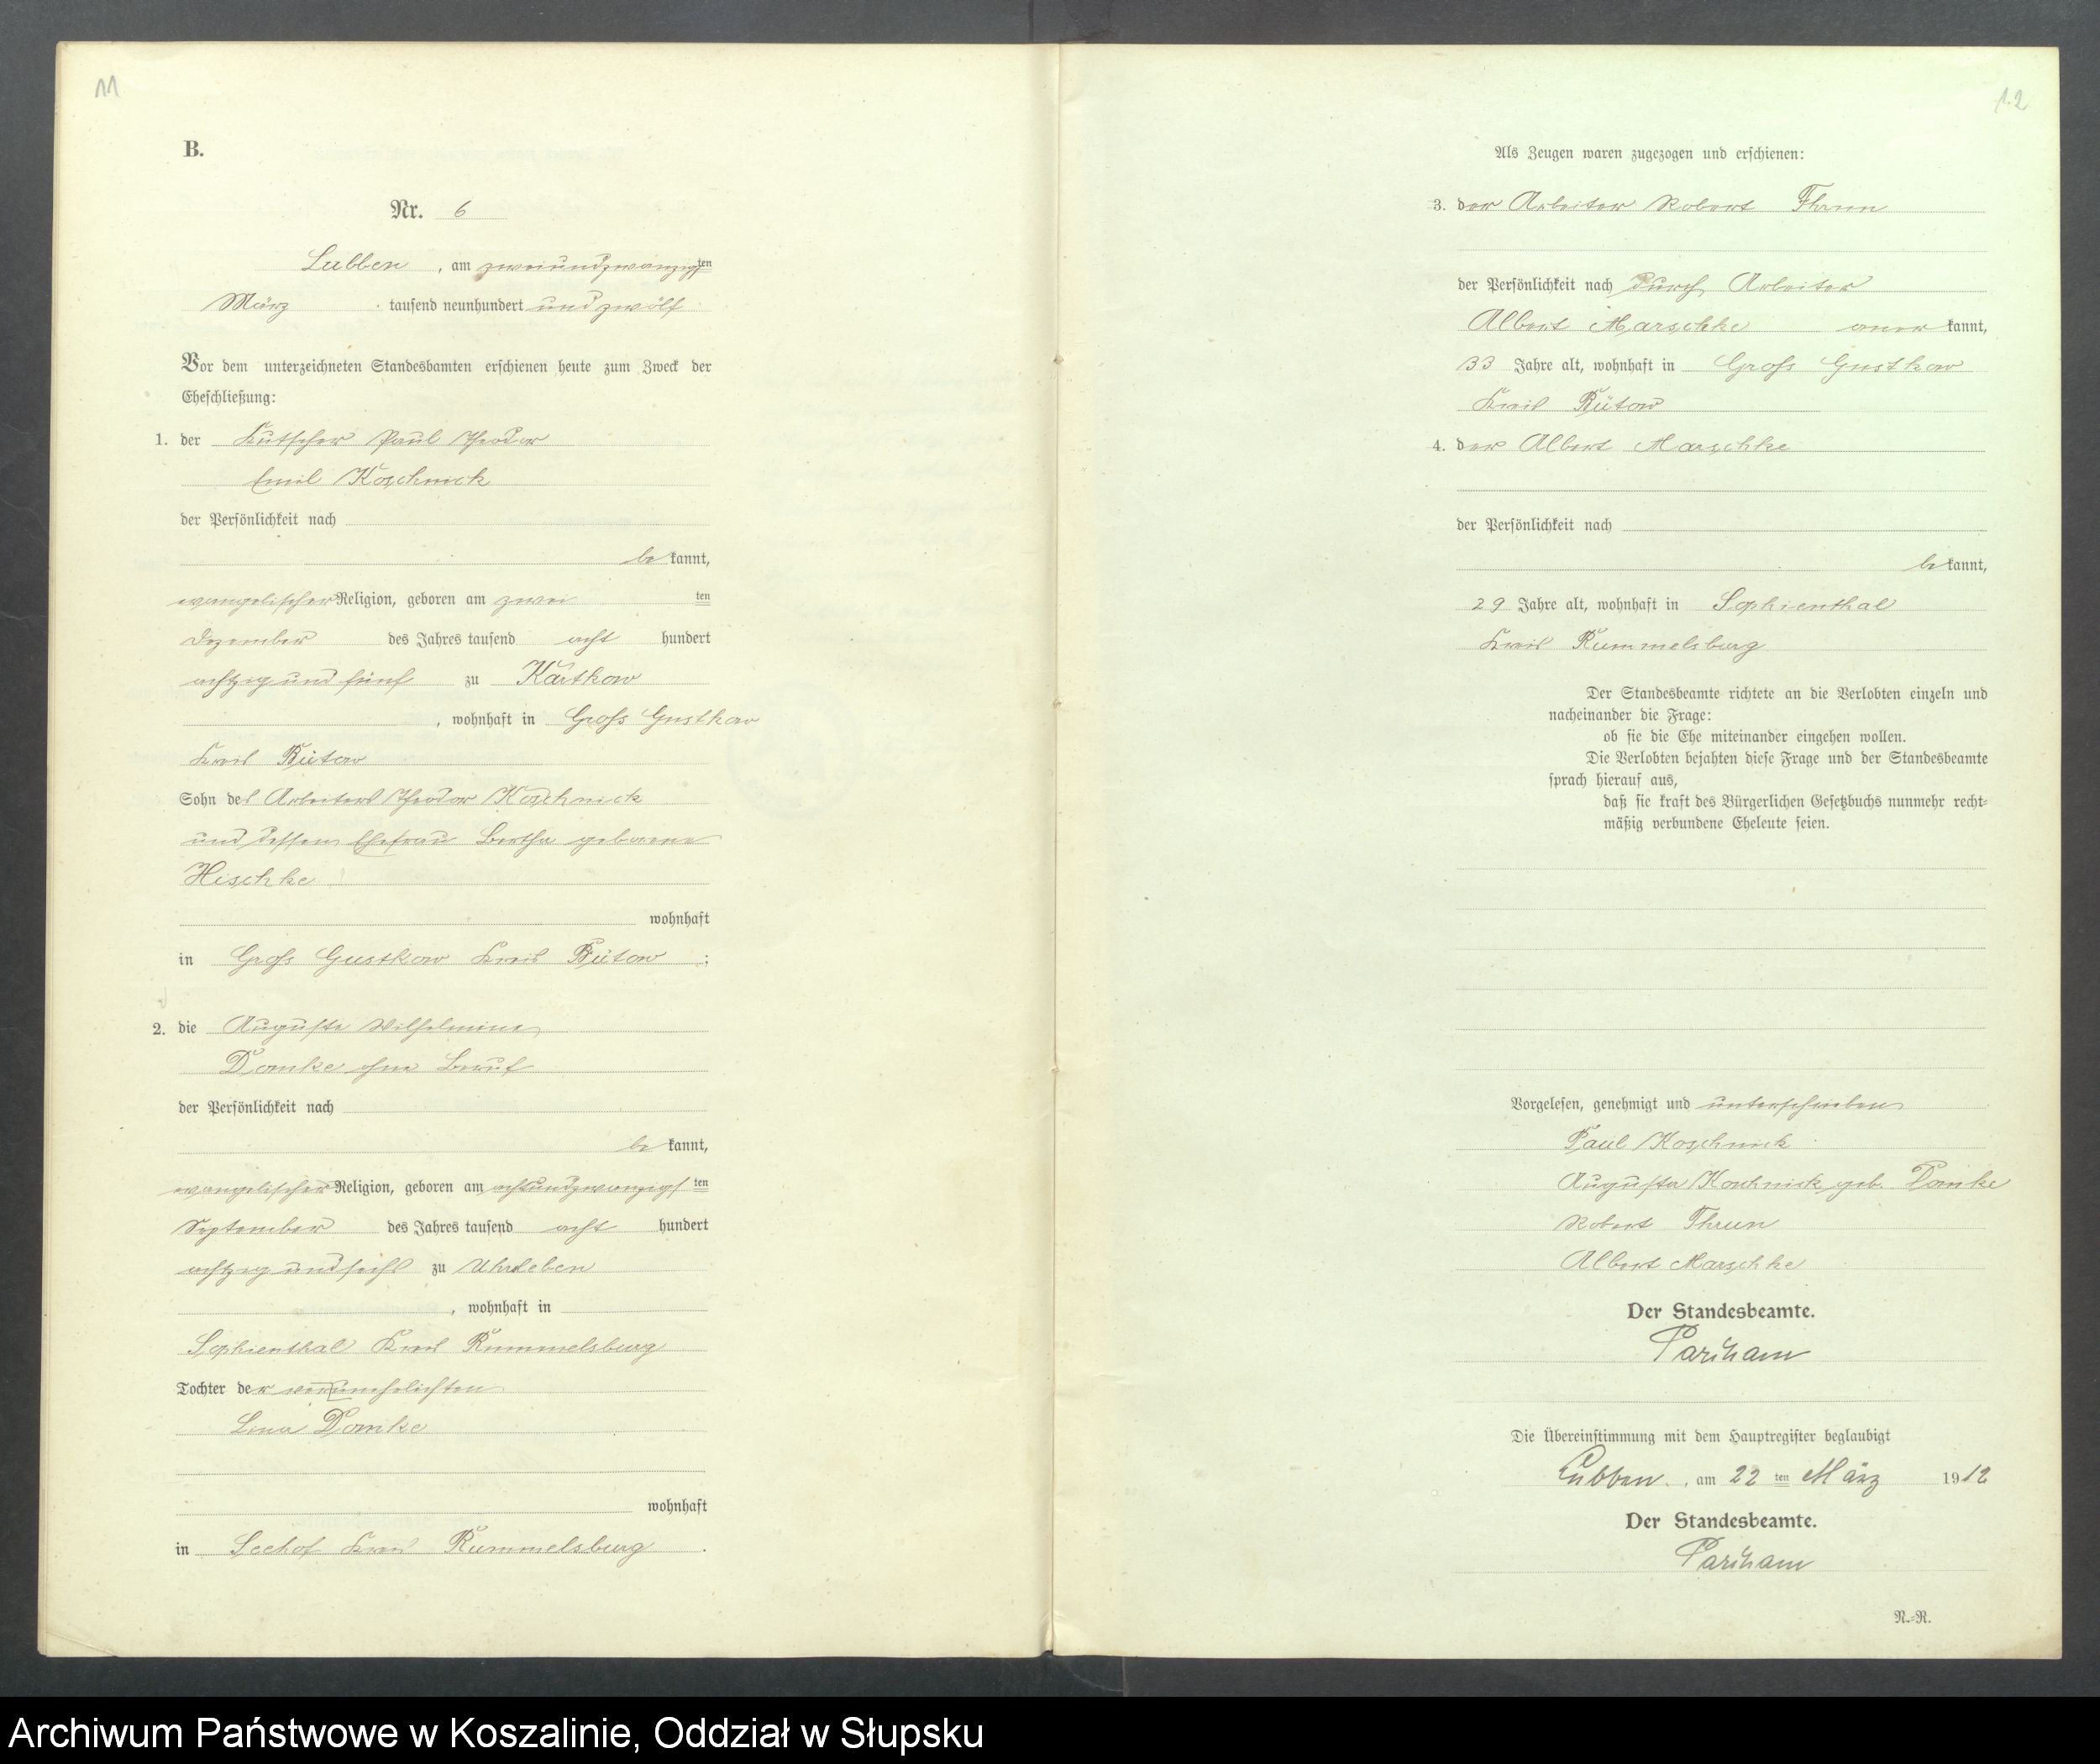 11
B.
Nr. 6
Lubben, am zweiundzwanzigsten
März tausend neunhundert und zwölf
Vor dem unterzeichneten Standesbamten erschienen heute zum Zweck der
Eheschließung:
1. der Kutscher Paul Theodor
Emil Koschnick
der Persönlichkeit nach
be kannt,
evangelischer Religion, geboren am zwei ten
Dezember des Jahres tausend acht hundert
achtzig und fünf zu Kartkow
, wohnhaft in Groß Gustkow
Kreis Bütow
Sohn des Arbeiters Theodor Koschnick
und dessen Ehefrau Bertha geborene
Hischke
wohnhaft
in Groß Gustkow Kreis Bütow ;
2. die Auguste Wilhelmine
Domke ohne Beruf
der Persönlichkeit nach
be kannt,
evangelischer Religion, geboren am achtundzwanzigs ten
September des Jahres tausend acht hundert
achtzig und sechs zu
, wohnhaft in
Sophienthal Kreis Rummelsburg
Tochter der unehelichten
Domke
wohnhaft
in Seehof Kreis Rummelsburg .
12
Als Zeugen waren zugezogen und erschienen:
3. der Arbeiter Robert Thrun
der Persönlichkeit nach durch Arbeiter
Albert Marschke aner kannt,
33 Jahre alt, wohnhaft in Groß Gustkow
Kreis Bütow
4. der Albert Marschke
der Persönlichkeit nach
be kannt,
29 Jahre alt, wohnhaft in Sophienthal
Kreis Rummelsburg
Der Standesbeamte richtete an die Verlobten einzeln und
nacheinander die Frage:
ob sie die Ehe miteinander eingehen wollen.
Die Verlobten bejahten diese Frage und der Standesbeamte
sprach hierauf aus,
daß sie kraft des Bürgerlichen Gesetzbuchs nunmehr recht-
mäßig verbundene Eheleute seien.
Vorgelesen, genehmigt und unterschrieben
Paul Koschnick
Auguste Koschnick geb. Domke
Robert Thrun
Albert Marschke
Der Standesbeamte.
Die Übereinstimmung mit dem Hauptregister beglaubigt
Lubben, am 22 ten März 1912
Der Standesbeamte.
N.-R.
Archiwum Państwowe w Koszalinie, Oddział w Słupsku